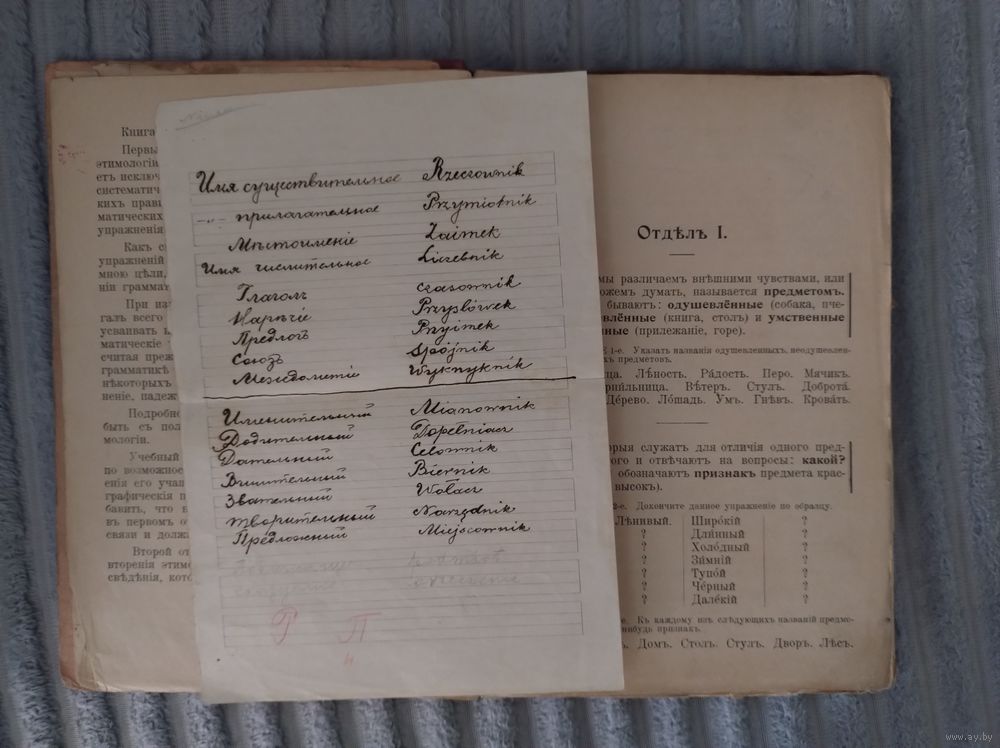 Книга
Первы
этимологіи
етъ исключ
систематич
кихъ прави
матических
упражненія
Какъ с
упражненій
мною цѣли,
ніи граммат
При из
галъ всего
усваивать
матическіе
считая преж
грамматикѣ
нѣкоторыхъ
неніе, падеж
Подробно
быть съ пол
мологіи.
Учебный
по возможнос
енія его учащ
графическія п
бавить, что в
въ первомъ от
связи и должн
Второй от
вторенія этимо
свѣдѣнія, кото
Имя существительное Rzeczownik
-„- прилагательное Przymiotnik
Мѣстоименіе Zaimek
Имя числительное Liczebnik
Глаголъ Czasownik
Нарѣчіе Przysłówek
Предлогъ Przyimek
Союзъ Spójnik
Междометіе Wykrzyknik
Именительный Mianownik
Родительный Dopełniacz
Дательный Celownik
Винительный Biernik
Звательный Wołacz
Творительный Narzędnik
Предложный Miejscownik
Р П
Отдѣлъ I.
мы различаемъ внѣшними чувствами, или
ожемъ думать, называется предметомъ.
бываютъ: одушевлённые (собака, пче-
влённые (книга, столъ) и умственные
нные (прилежаніе, горе).
1-е. Указать названія одушевленныхъ, неодушевлен-
хъ предметовъ.
ца. Лѣность. Ра́дость. Перо. Мячикъ.
ри́льница. Вѣтеръ. Стулъ. Доброта́.
Де́рево. Ло́шадь. Умъ. Гнѣвъ. Крова́ть.
орыя служатъ для отличія одного пред-
ого и отвѣчаютъ на вопросы: какой?
обозначаютъ признакъ предмета крас-
высокъ).
2-е. Докончите данное упражненіе по образцу.
Лѣнивый. Широ́кій ?
? Дли́нный ?
? Холо́дный ?
? Зи́мній ?
? Тупо́й ?
? Че́рный ?
? Дале́кій ?
е. Къ каждому изъ слѣдующихъ названій предме-
нибудь признакъ.
ъ. Домъ. Столъ. Стулъ. Дворъ. Лѣсъ.
www.ay.by